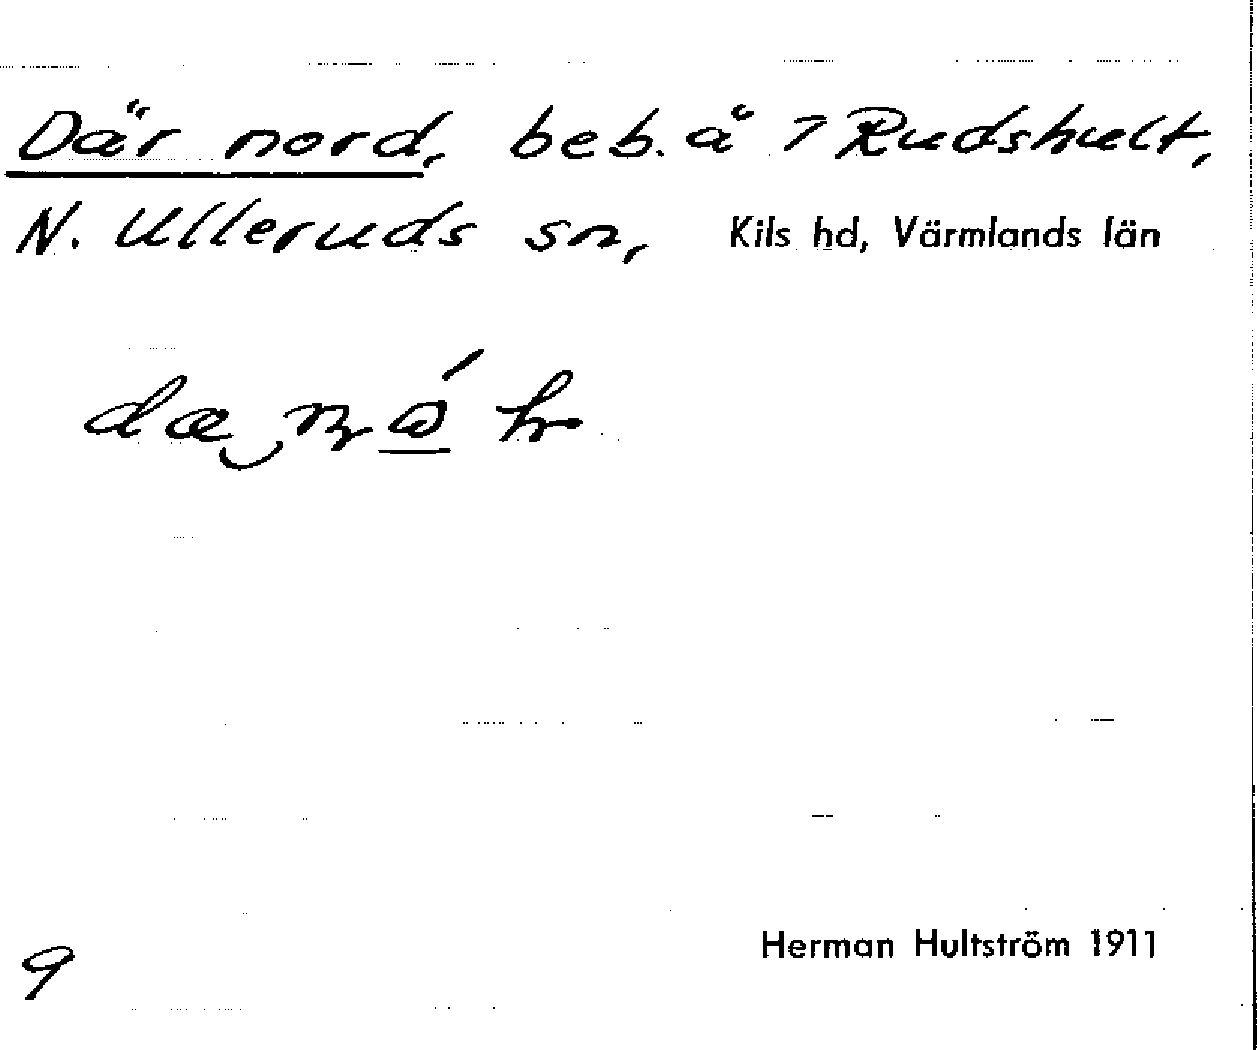 Där nord, beb. å 7 Rudshult,
N. Ulleruds sn, Kils hd, Värmlands län
Herman Hultström 1911
9